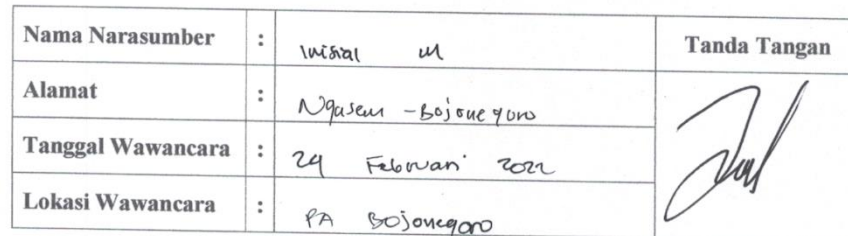 Nama Narasumber : Inisial M Tanda Tangan
Alamat : Ngasem - Bojonegoro
Tanggal Wawancara : 24 Februari 2022
Lokasi Wawancara : PA Bojonegoro